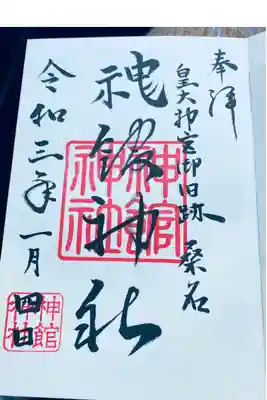 奉拝
皇大神宮御旧跡 桑名
神館神社
令和三年一月四日
神館神社
神館神社